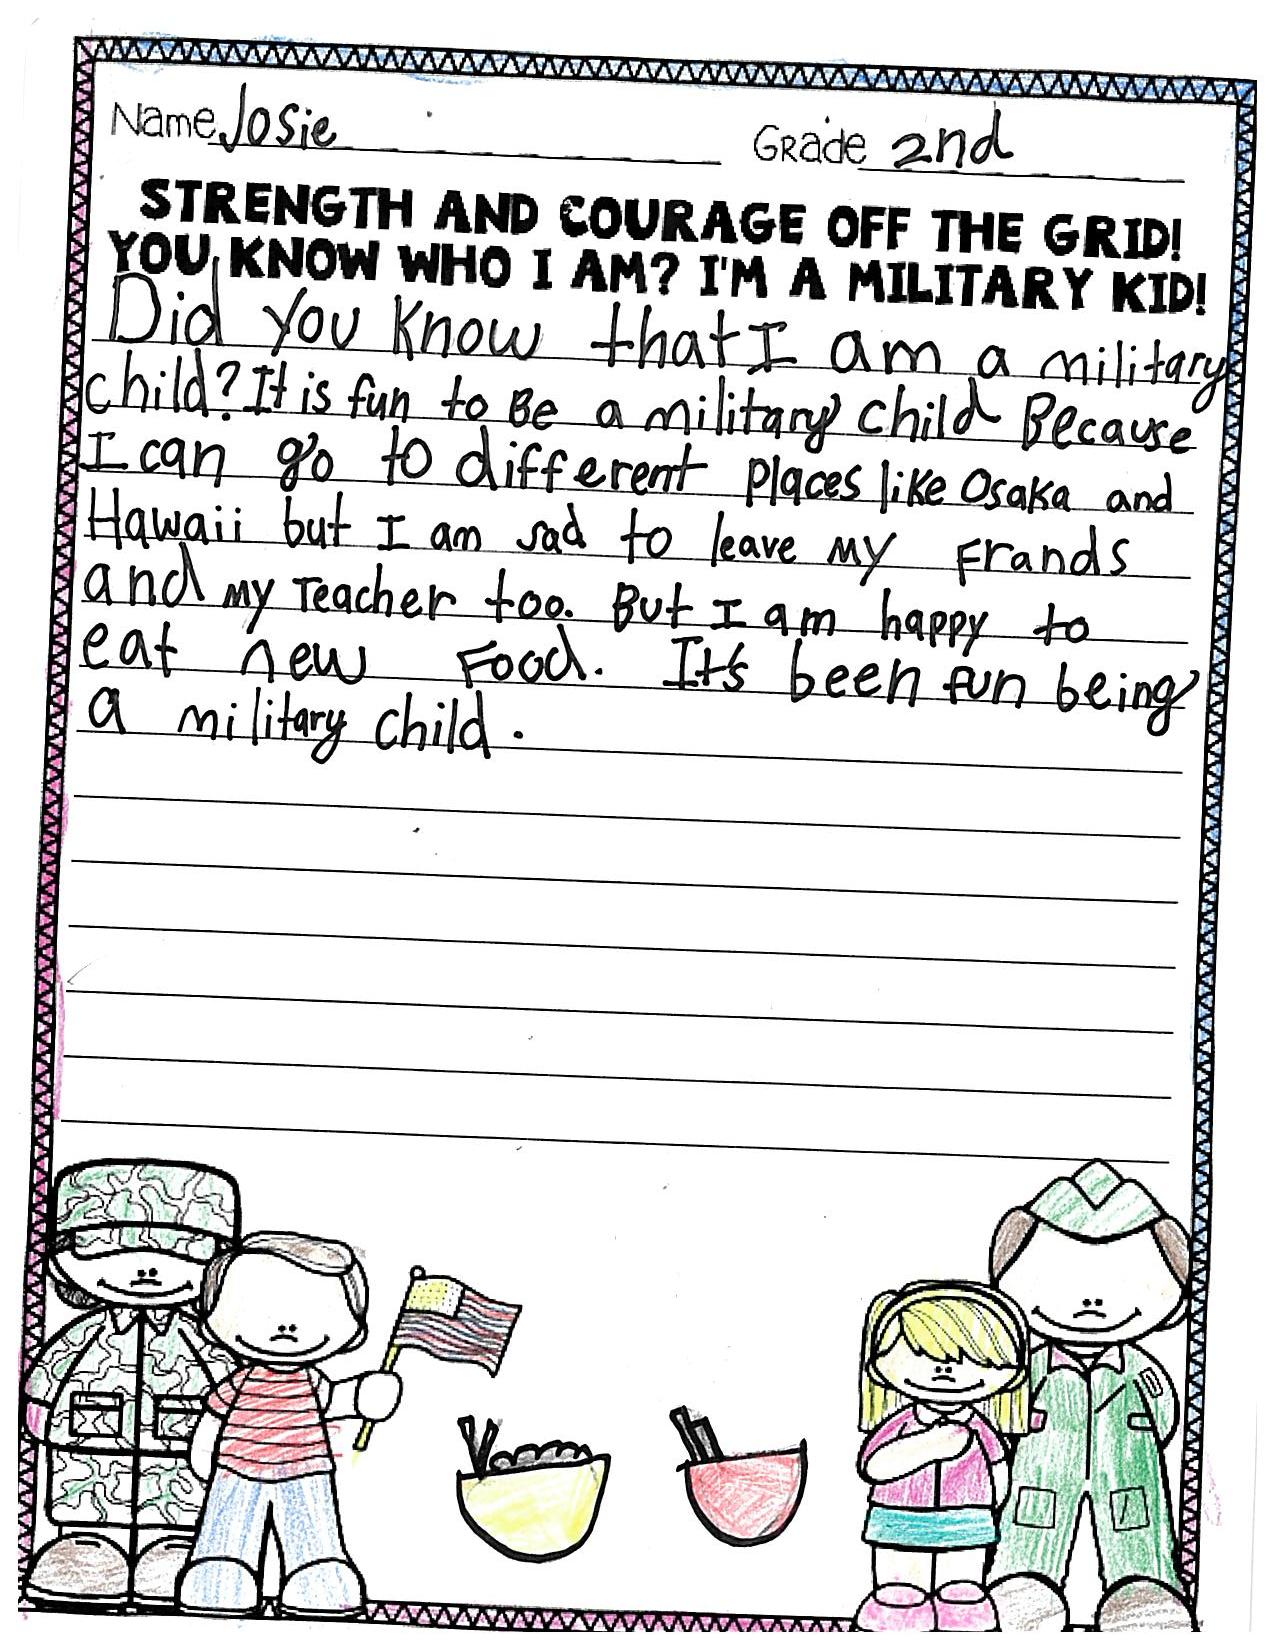 Name Josie Grade 2nd
STRENGTH AND COURAGE OFF THE GRID!
YOU KNOW WHO I AM? I'M A MILITARY KID!
Did you know that I am a military
child? It is fun to Be a military child Because
I can go to different places like Osaka and
Hawaii but I am sad to leave my Frands
and my Teacher too. But I am happy to
eat new Food. It's been fun being
a military child.